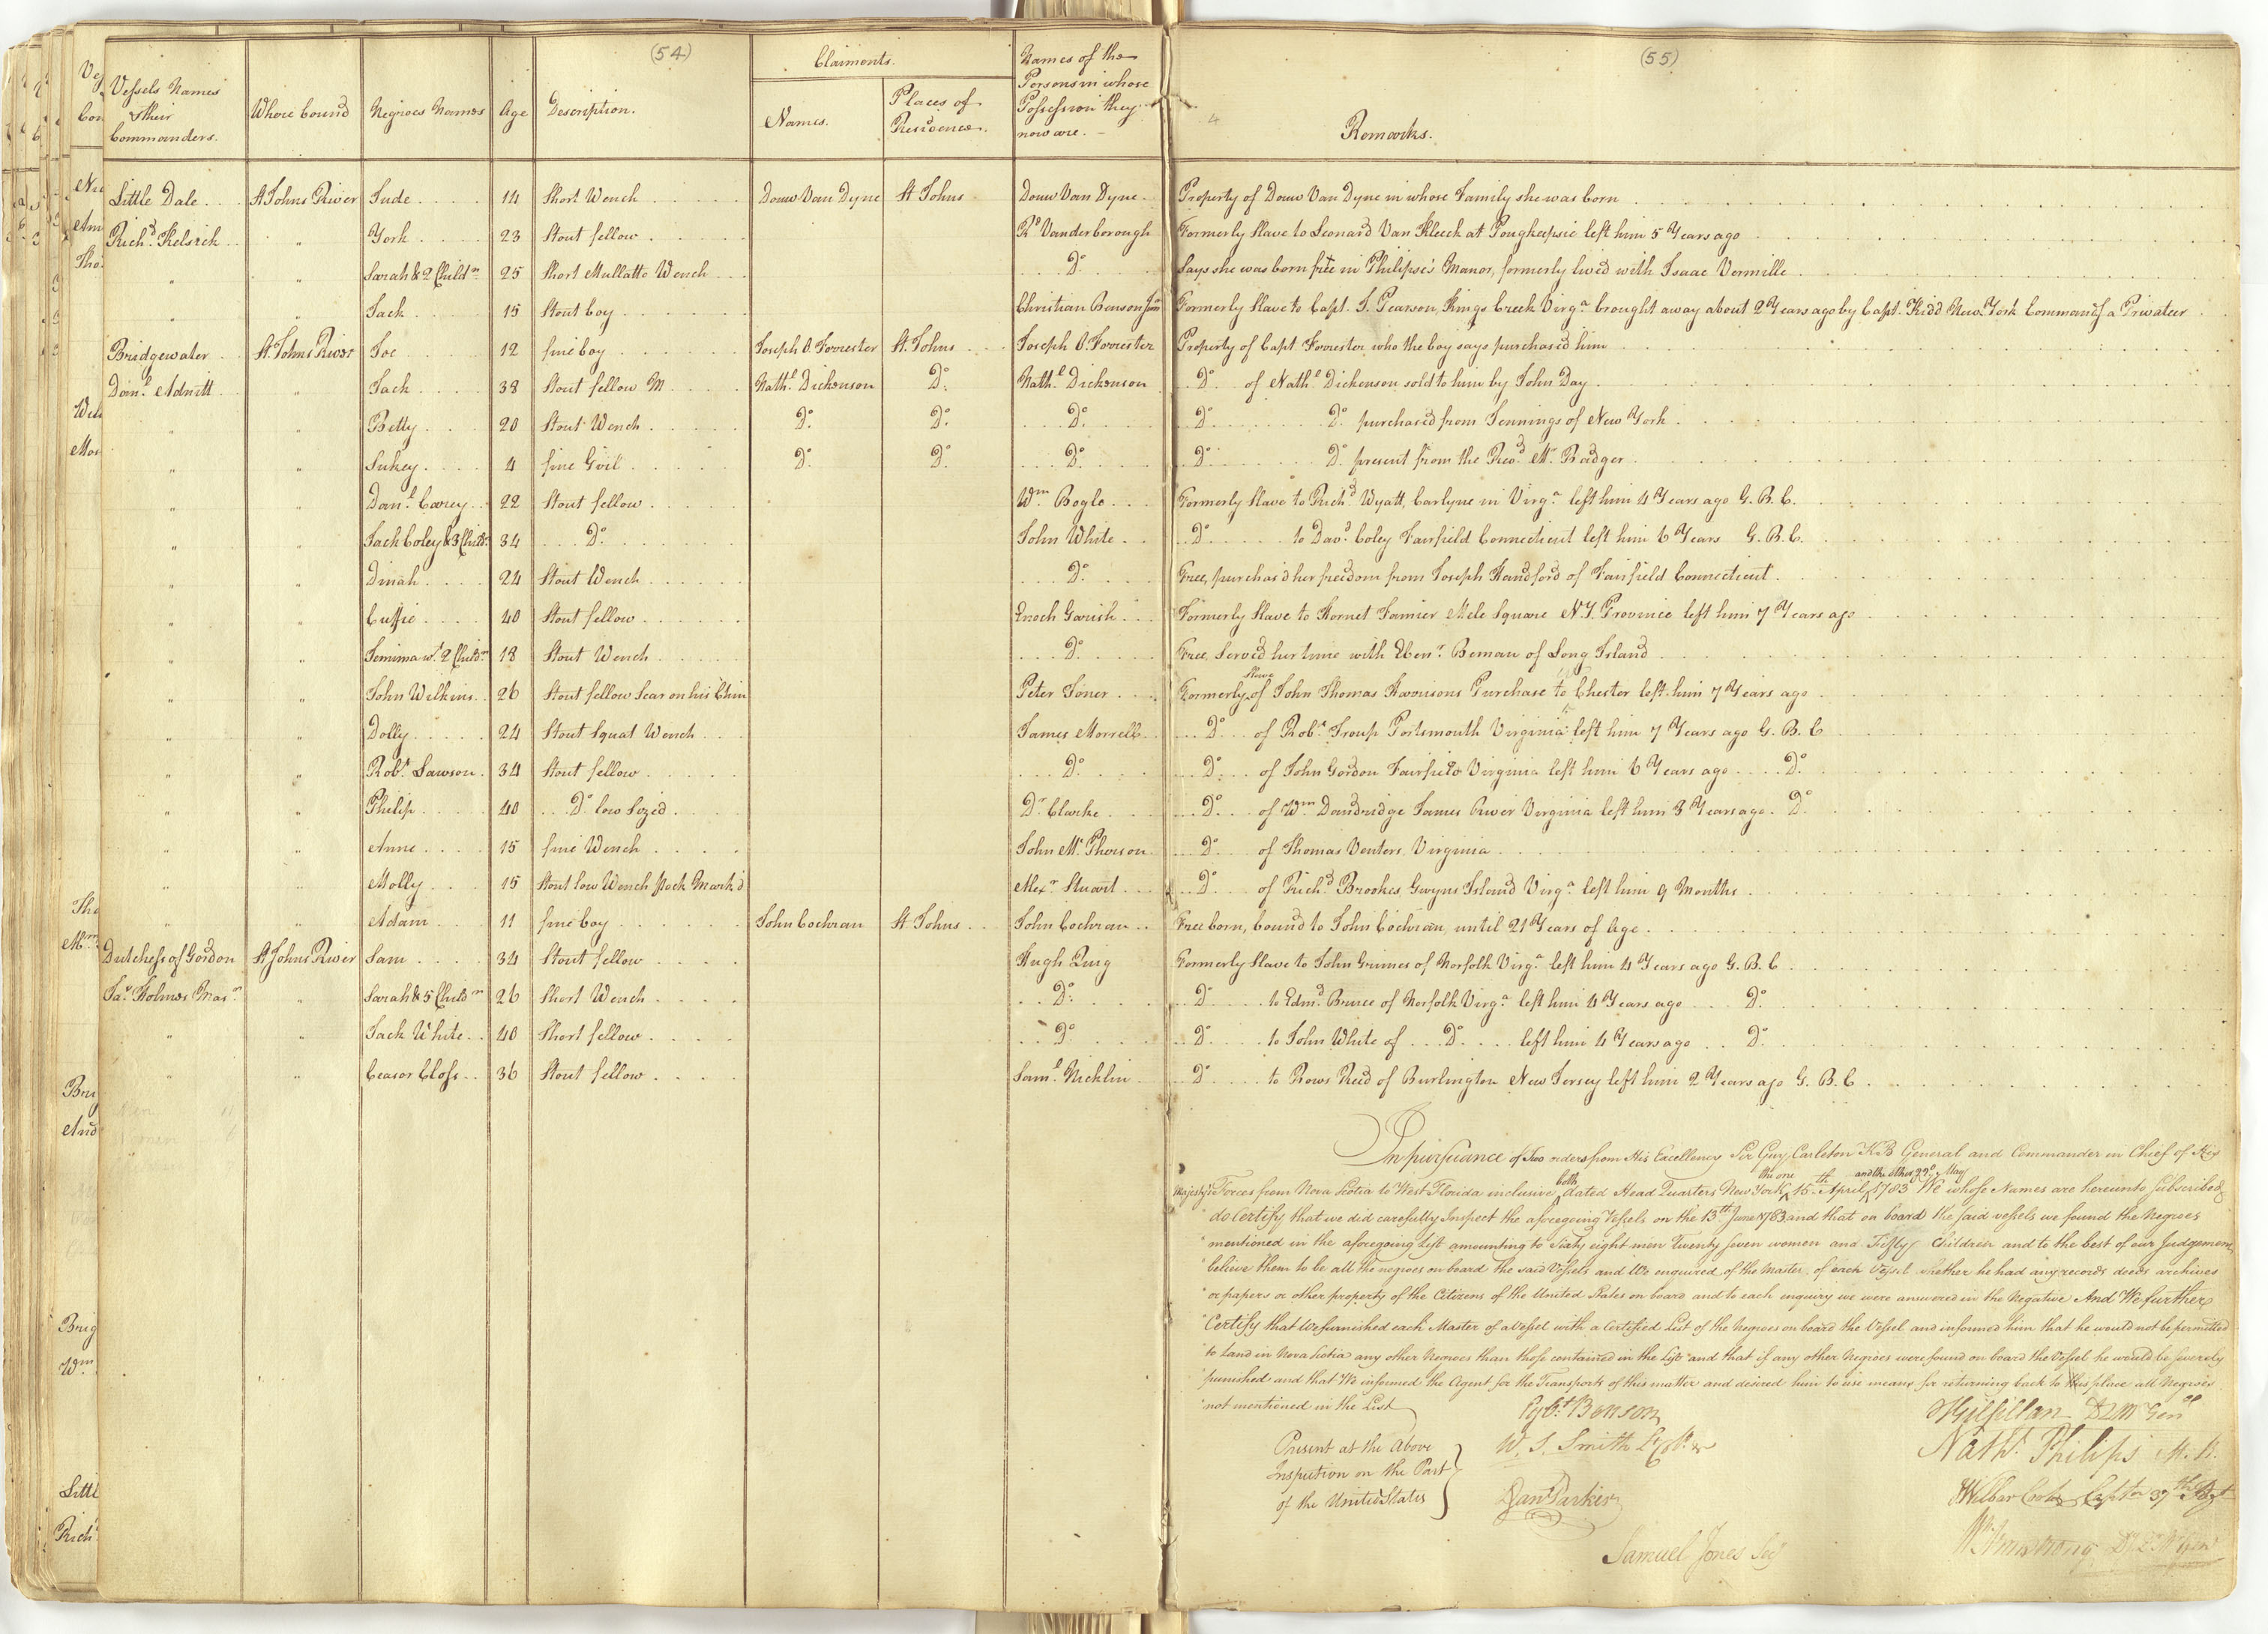 (54)
(55)
Vessels Names & their Commanders.
Where bound
Negroes Names
Age
Description.
Claimants.
Names.
Places of Residence.
Names of the Persons in whose Possession they now are. –
Remarks.
Little Dale St Johns River Jude 14 Short Wench Douw Van Dyne St Johns Douw Van Dyne Property of Douw Van Dyne in whose Family she was born
Richd. Kelsick " York 23 Stout fellow Rd Vanderborough Formerly Slave to Leonard Van Kleeck at Poughkeepsie left him 5 Years ago
" " Sarah & 2 Childn. 25 Short Mullatto Wench Do. Says she was born free in Philipse's Manor, formerly lived with Isaac Vermille
" " Jack 15 Stout boy Christian Benson Junr Formerly Slave to Capt. J. Pearson, Kings Creek Virga. brought away about 2 Years ago by Capt. Kidd New York Commandg a Privateer
Bridgewater St. Johns River Joe 12 fine boy Joseph O. Forrester St. Johns Joseph O. Forrester Property of Capt Forrester who the boy says purchased him
Danl. Adnitt " Jack 38 Stout fellow M Nathl. Dickenson Do. Nathl. Dickenson Do. of Nathl. Dickenson sold to him by John Day
" " Betty 20 Stout Wench Do. Do. Do. Do. Do. purchased from Jennings of New York
" " Sukey 4 fine Girl Do. Do. Do. Do. Do. present from the Revd. Mr. Badger
" " Danl. Carey 22 Stout fellow Wm. Bogle Formerly Slave to Richd. Wyatt, Carlyne in Virga. left him 4 Years ago G. B. C.
" " Jack Coley & 3 Childn. 34 Do. John White Do. to Davd. Coley Fairfield Connecticut left him 6 Years G. B. C.
" " Dinah 24 Stout Wench Do. Free, purchas'd her freedom from Joseph Handford of Fairfield Connecticut.
" " Cuffie 40 Stout fellow Enoch Gerrish Formerly Slave to Hornet Farrier Mele Square N.Y. Province left him 7 Years ago
" " Jemima wt. 2 Childn. 18 Stout Wench Do. Free, Served her time with Ebenr. Beman of Long Island
" " John Wilkins 26 Stout fellow Scar on his Chin Peter Joner Formerly Slave of John Thomas Harrisons Purchase to Chester left him 7 Years ago
" " Dolly 24 Stout Squat Wench James Morrell Do. of Robt. Troup Portsmouth Virginia left him 7 Years ago G. B. C
" " Robt. Lawson 34 Stout fellow Do. Do. of John Gordon Fairfield Virginia left him 6 Years ago Do.
" " Philip 40 Do. low Sized Dr. Clarke Do. of Wm. Dandridge James River Virginia left him 3 Years ago. Do.
" " Anne 15 fine Wench John Mc. Pherson Do. of Thomas Venters Virginia
" " Molly 15 Stout low Wench Pock Mark'd Alexr. Stuart Do. of Richd. Brookes Gwyns Island Virga. left him 9 Months
" " Adam 11 fine boy John Cochran St Johns John Cochran Free born, bound to John Cochran, until 21 Years of Age
Dutchess of Gordon St Johns River Sam 34 Stout fellow Hugh Quig Formerly Slave to John Grimes of Norfolk Virga. left him 4 Years ago G. B. C
Jas. Holmes Masr. " Sarah & 5 Childn 26 Short Wench Do. Do. to Edmd. Bruce of Norfolk Virga. left him 4 Years ago Do.
" " Jack White 40 Short fellow Do. Do. to John White of Do. left him 4 Years ago Do.
" " Ceasor Closs 36 Stout fellow Saml. Nicklin Do. to Rows Reed of Burlington New Jersey left him 2 Years ago G. B. C
In pursuance of two orders from His Excellency Sir Guy Carleton K.B General and Commander in Chief of His
Majesty's Forces from Nova Scotia to West Florida inclusive both dated Head Quarters New York the one 15th. April and the other 22d May 1783 We whose Names are hereunto Subscribed
do Certify that we did carefully Inspect the aforegoing Vessels on the 13th. June 1783 and that on board the said vessels we found the Negroes
mentioned in the aforegoing List amounting to Sixty eight men Twenty seven women and Fifty Children and to the best of our Judgement
believe them to be all the negroes on board the said Vessels and We enquired of the Master of each Vessel whether he had any records deeds archives
or papers or other property of the Citizens of the United States on board and to each enquiry we were answered in the Negative And We further
Certify that We furnished each Master of a Vessel with a Certified List of the Negroes on board the Vessel and informed him that he would not be permitted
to Land in Nova Scotia any other Negroes than those contained in the List and that if any other Negroes were found on board the Vessel he would be severely
punished and that We informed the Agent for the Transports of this matter and desired him to use means for returning back to this place all Negroes
not mentioned in the List
Present at the Above
Inspection on the Part
of the United States
Egbt. Benson
W. S. Smith Lt Col
Danl Parker
Samuel Jones Secy
T Gilfillan DQM Genl
Nathl. Philips M. B.
Wilbar Cook Captn 37th Regt
Wm. Armstrong D. Q M Genl